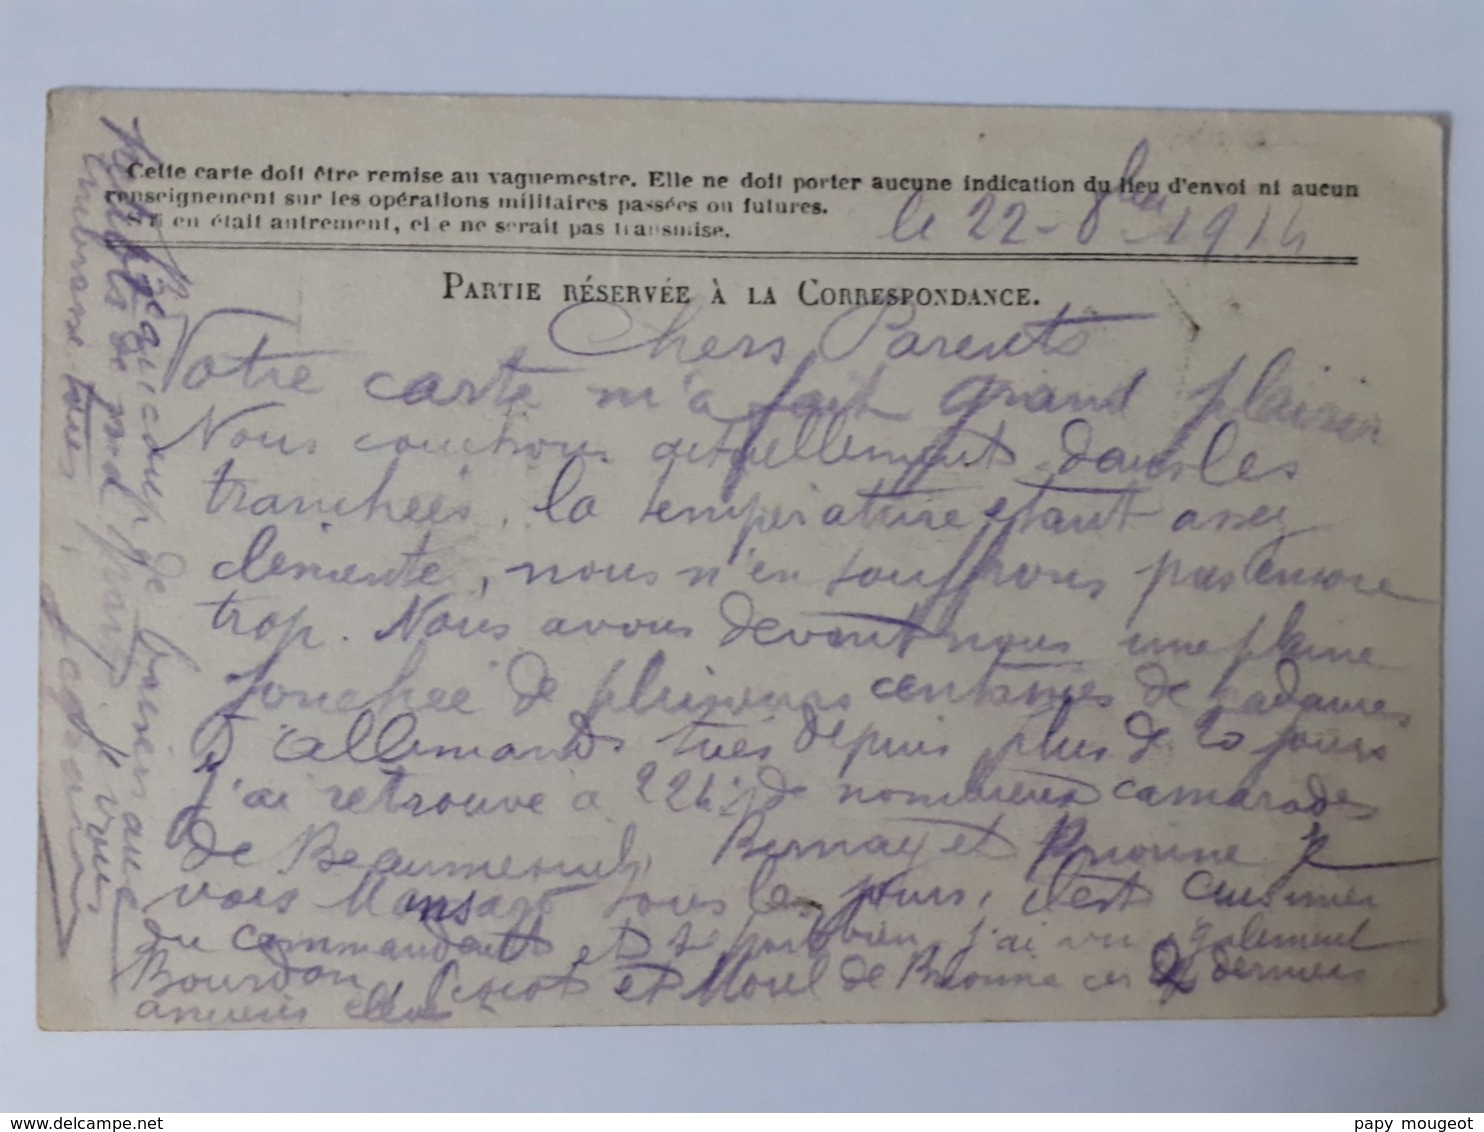 Cette carte doit être remise au vaguemestre. Elle ne doit porter aucune indication du lieu d'envoi ni aucun
renseignement sur les opérations militaires passées ou futures.
S'il en était autrement, elle ne serait pas transmise.
le 22-8bre 1914
PARTIE RÉSERVÉE À LA CORRESPONDANCE.
Chers Parents
Votre carte m'a fait grand plaisir
Nous couchons actuellement dans les
tranchées, la température étant assez
clémente, nous n'en souffrons pas encore
trop. Nous avons devant nous une plaine
jonchée de plusieurs centaines de cadavres
d'allemands tués depuis plus de 20 jours
j'ai retrouvé a 22h de nombreux camarades
de Beaumesnil, Bernay et Brionne je
vois Mansago tous les jours, il est cuisinier
du commandant et se porte bien, j'ai vu également
Bourdon et Morel de Brionne ces 2 derniers
anciens
beaucoup de baisers aux
petits de ma part, je vous
embrasse tous
papy mougeot